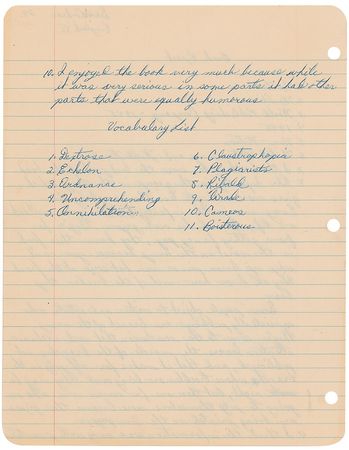 10. I enjoyed the book very much because while
it was very serious in some parts it had other
parts that were equally humorous
Vocabulary List
1. Dextrose
2. Echelon
3. Ordnance
4. Uncomprehending
5. Annihilation
6. Claustrophopia
7. Plagiarists
8. Ribald
9. Tirade
10. Cameos
11. Boisterous